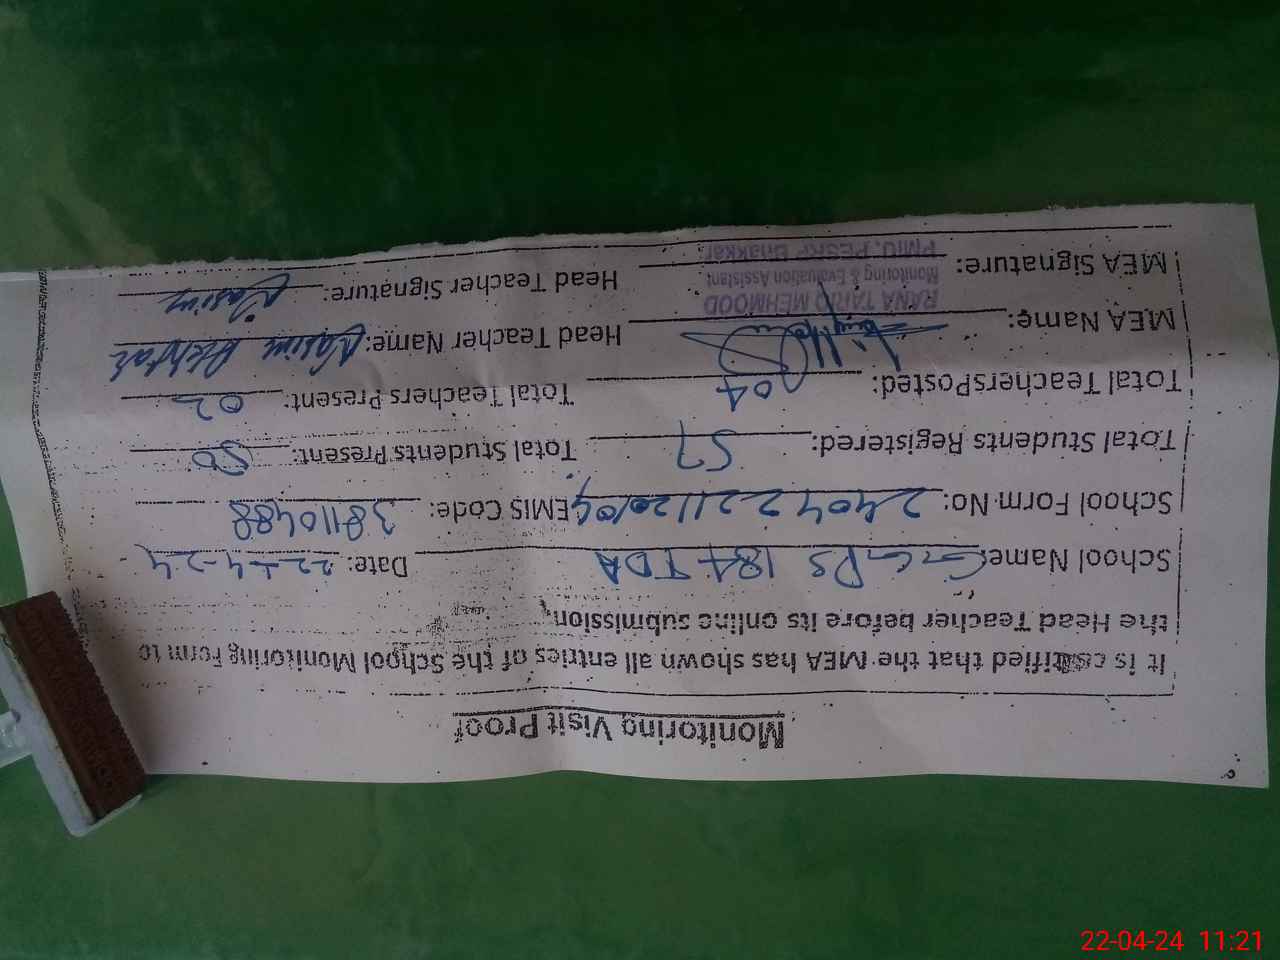 Monitoring Visit Proof
It is certified that the MEA has shown all entries of the School Monitoring Form to
the Head Teacher before its online submission.
School Name: GGPS 184 TDA Date: 22-4-24
School Form No: EMIS Code: 38110488
Total Students Registered: 57 Total Students Present: 50
Total Teachers Posted: 04 Total Teachers Present: 02
MEA Name: Head Teacher Name:
RANA TARIQ MEHMOOD
MEA Signature: Monitoring & Evaluation Assistant Head Teacher Signature:
PMIU, PESRP Bhakkar
22-04-24 11:21